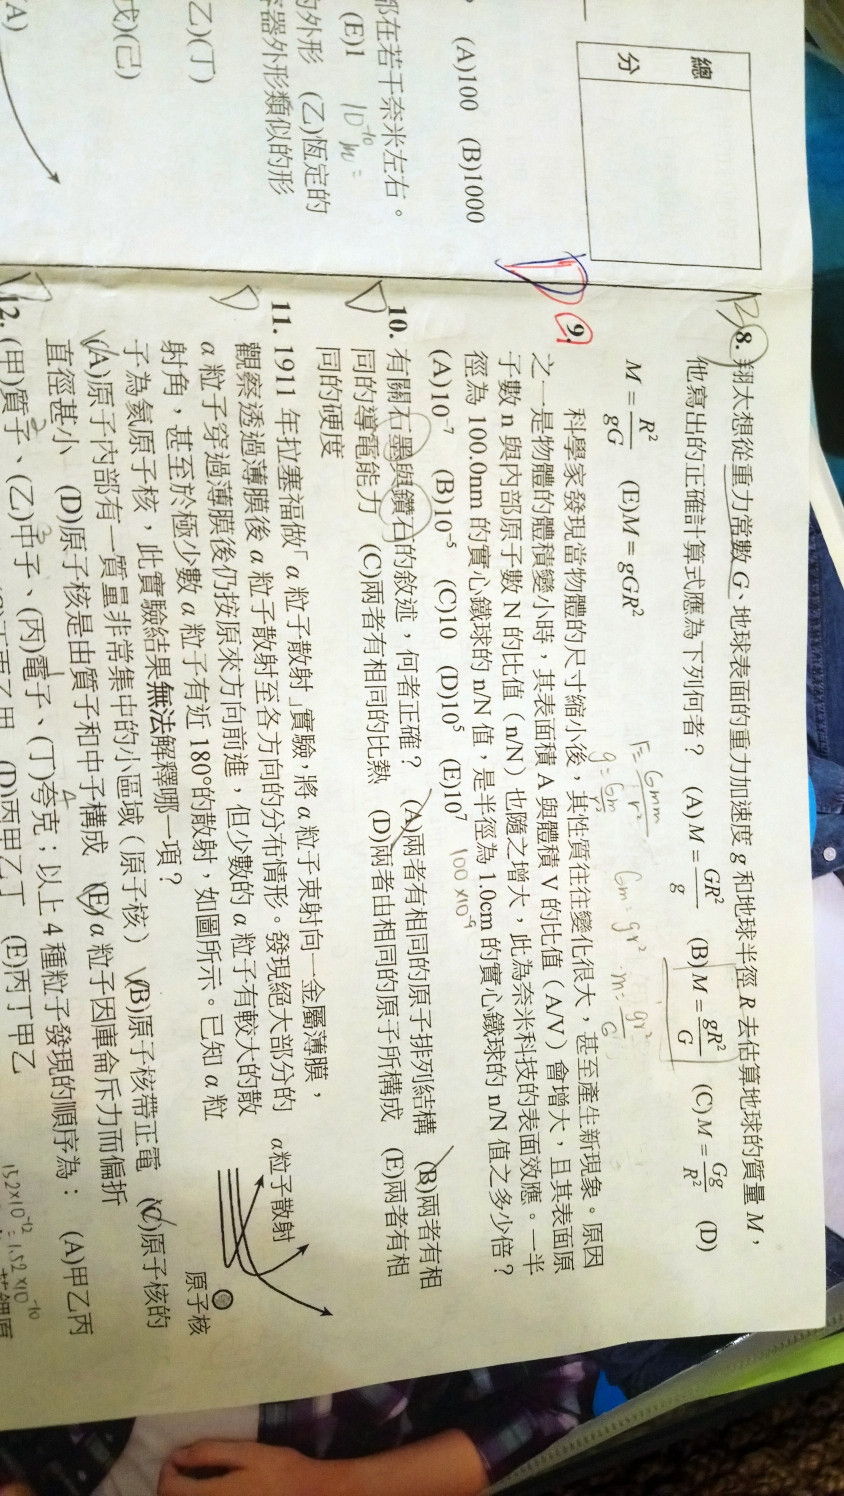 總
分
(A)100 (B)1000
都在若干奈米左右。
(E)1
的外形 (乙)恆定的
容器外形類似的形
乙)(丁)
戊)(己)
(A)
8. 翔太想從重力常數 G、地球表面的重力加速度 g 和地球半徑 R 去估算地球的質量 M，
他寫出的正確計算式應為下列何者？ (A) M = GR²/g (B) M = gR²/G (C) M = Gg/R² (D)
M = R²/gG (E) M = gGR²
9. 科學家發現當物體的尺寸縮小後，其性質往往變化很大，甚至產生新現象。原因
之一是物體的體積變小時，其表面積 A 與體積 V 的比值（A/V）會增大，且其表面原
子數 n 與內部原子數 N 的比值（n/N）也隨之增大，此為奈米科技的表面效應。一半
徑為 100.0nm 的實心鐵球的 n/N 值，是半徑為 1.0cm 的實心鐵球的 n/N 值之多少倍？
(A)10⁻⁷ (B)10⁻⁵ (C)10 (D)10⁵ (E)10⁷
100×10⁻⁹
10. 有關石墨與鑽石的敘述，何者正確？ (A)兩者有相同的原子排列結構 (B)兩者有相
同的導電能力 (C)兩者有相同的比熱 (D)兩者由相同的原子所構成 (E)兩者有相
同的硬度
11. 1911 年拉塞福做「α 粒子散射」實驗，將 α 粒子束射向一金屬薄膜，
觀察透過薄膜後 α 粒子散射至各方向的分布情形。發現絕大部分的
α 粒子穿過薄膜後仍按原來方向前進，但少數的 α 粒子有較大的散
射角，甚至於極少數 α 粒子有近 180°的散射，如圖所示。已知 α 粒
子為氦原子核，此實驗結果無法解釋哪一項？
(A)原子內部有一質量非常集中的小區域（原子核） (B)原子核帶正電 (C)原子核的
直徑甚小 (D)原子核是由質子和中子構成 (E)α 粒子因庫侖斥力而偏折
α粒子散射
原子核
12. (甲)質子、(乙)中子、(丙)電子、(丁)夸克；以上 4 種粒子發現的順序為： (A)甲乙丙
(D)丙甲乙丁 (E)丙丁甲乙